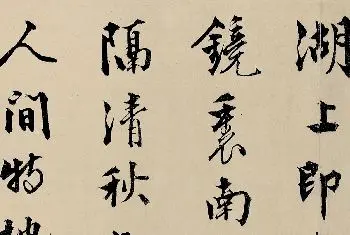 湖上即
鏡裏南
隔清秋
人間特